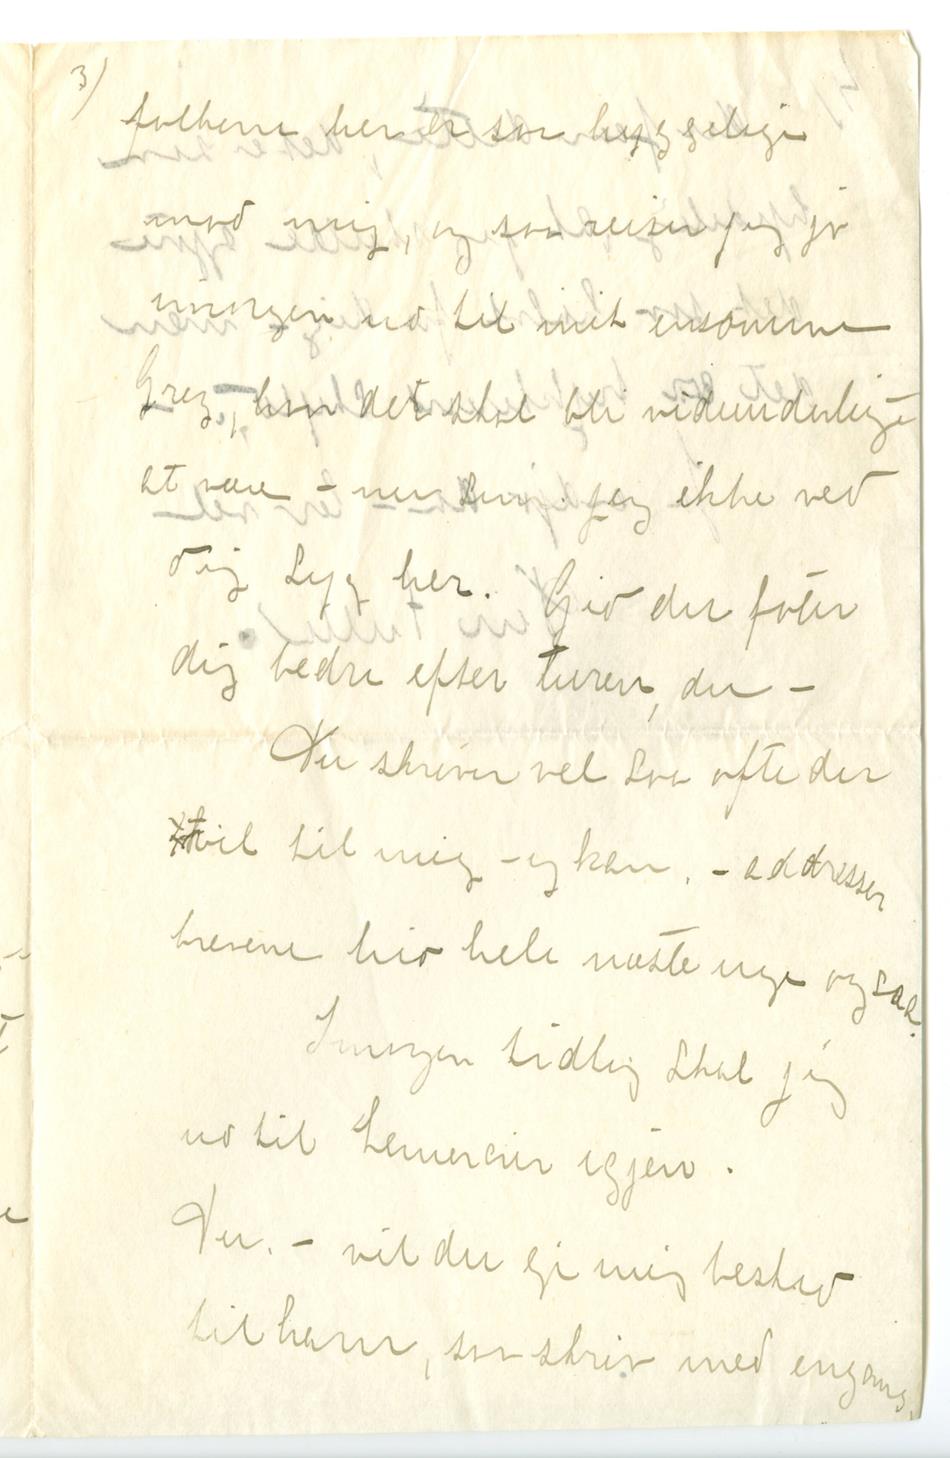 3)
folkene her er saa hyggelige
mod mig, og saa reiser jeg jo
imorgen ud til mit ensomme
Grez, hvor det skal bli vidunderligt
at være – nu jeg ikke ved
dig Syg her. Gid du føler
dig bedre efter turen, du –
Du skriver vel saa ofte du
vil til mig – og kan. – addresser
brevene hid hele næste uge ogsaa.
Imorgen tidlig skal jeg
ud til Lemercier igjen.
Du. – vil du gi mig besked
til ham, saa skriv med engang,